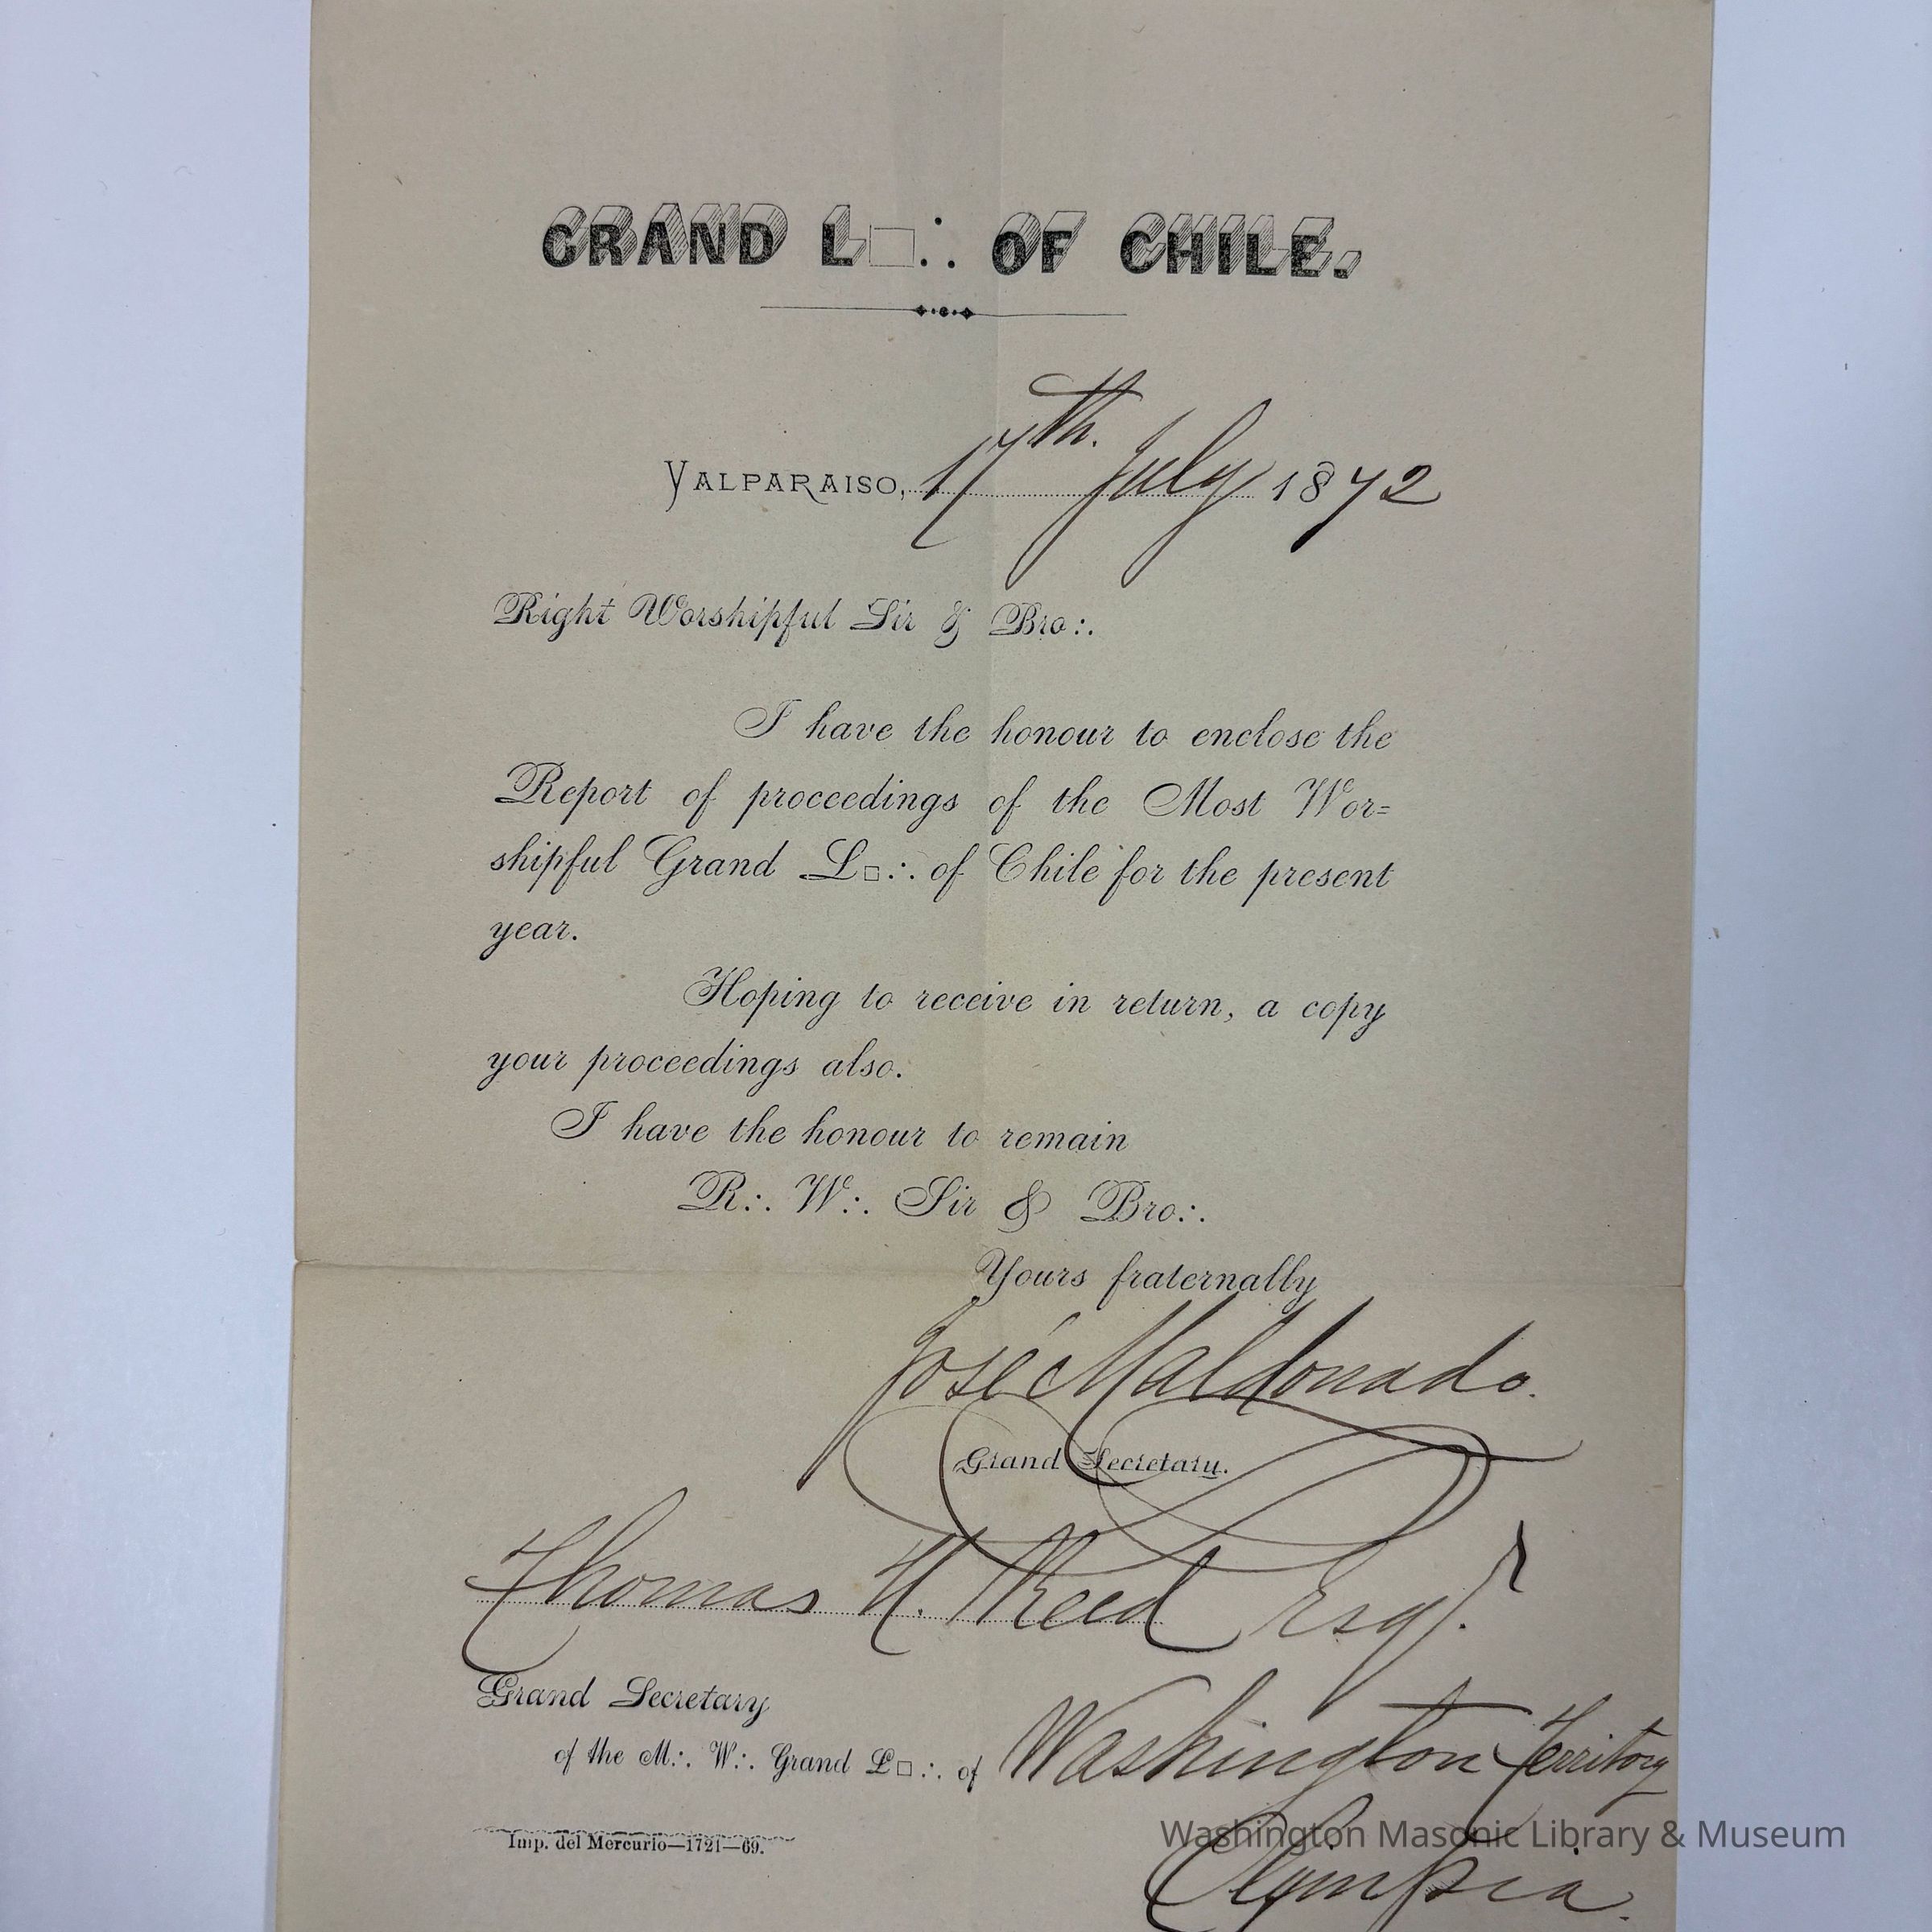 GRAND L□∴ OF CHILE.
VALPARAISO, 17th. July 1872
Right Worshipful Sir & Bro∴
I have the honour to enclose the
Report of proceedings of the Most Wor=
shipful Grand L□∴ of Chile for the present
year.
Hoping to receive in return, a copy
your proceedings also.
I have the honour to remain
R∴ W∴ Sir & Bro∴
Yours fraternally
José Maldonado.
Grand Secretary.
Thomas H. Reed Esqr.
Grand Secretary
of the M∴ W∴ Grand L□∴ of Washington Territory
Imp. del Mercurio—1721—69.
Washington Masonic Library & Museum
Olympia.